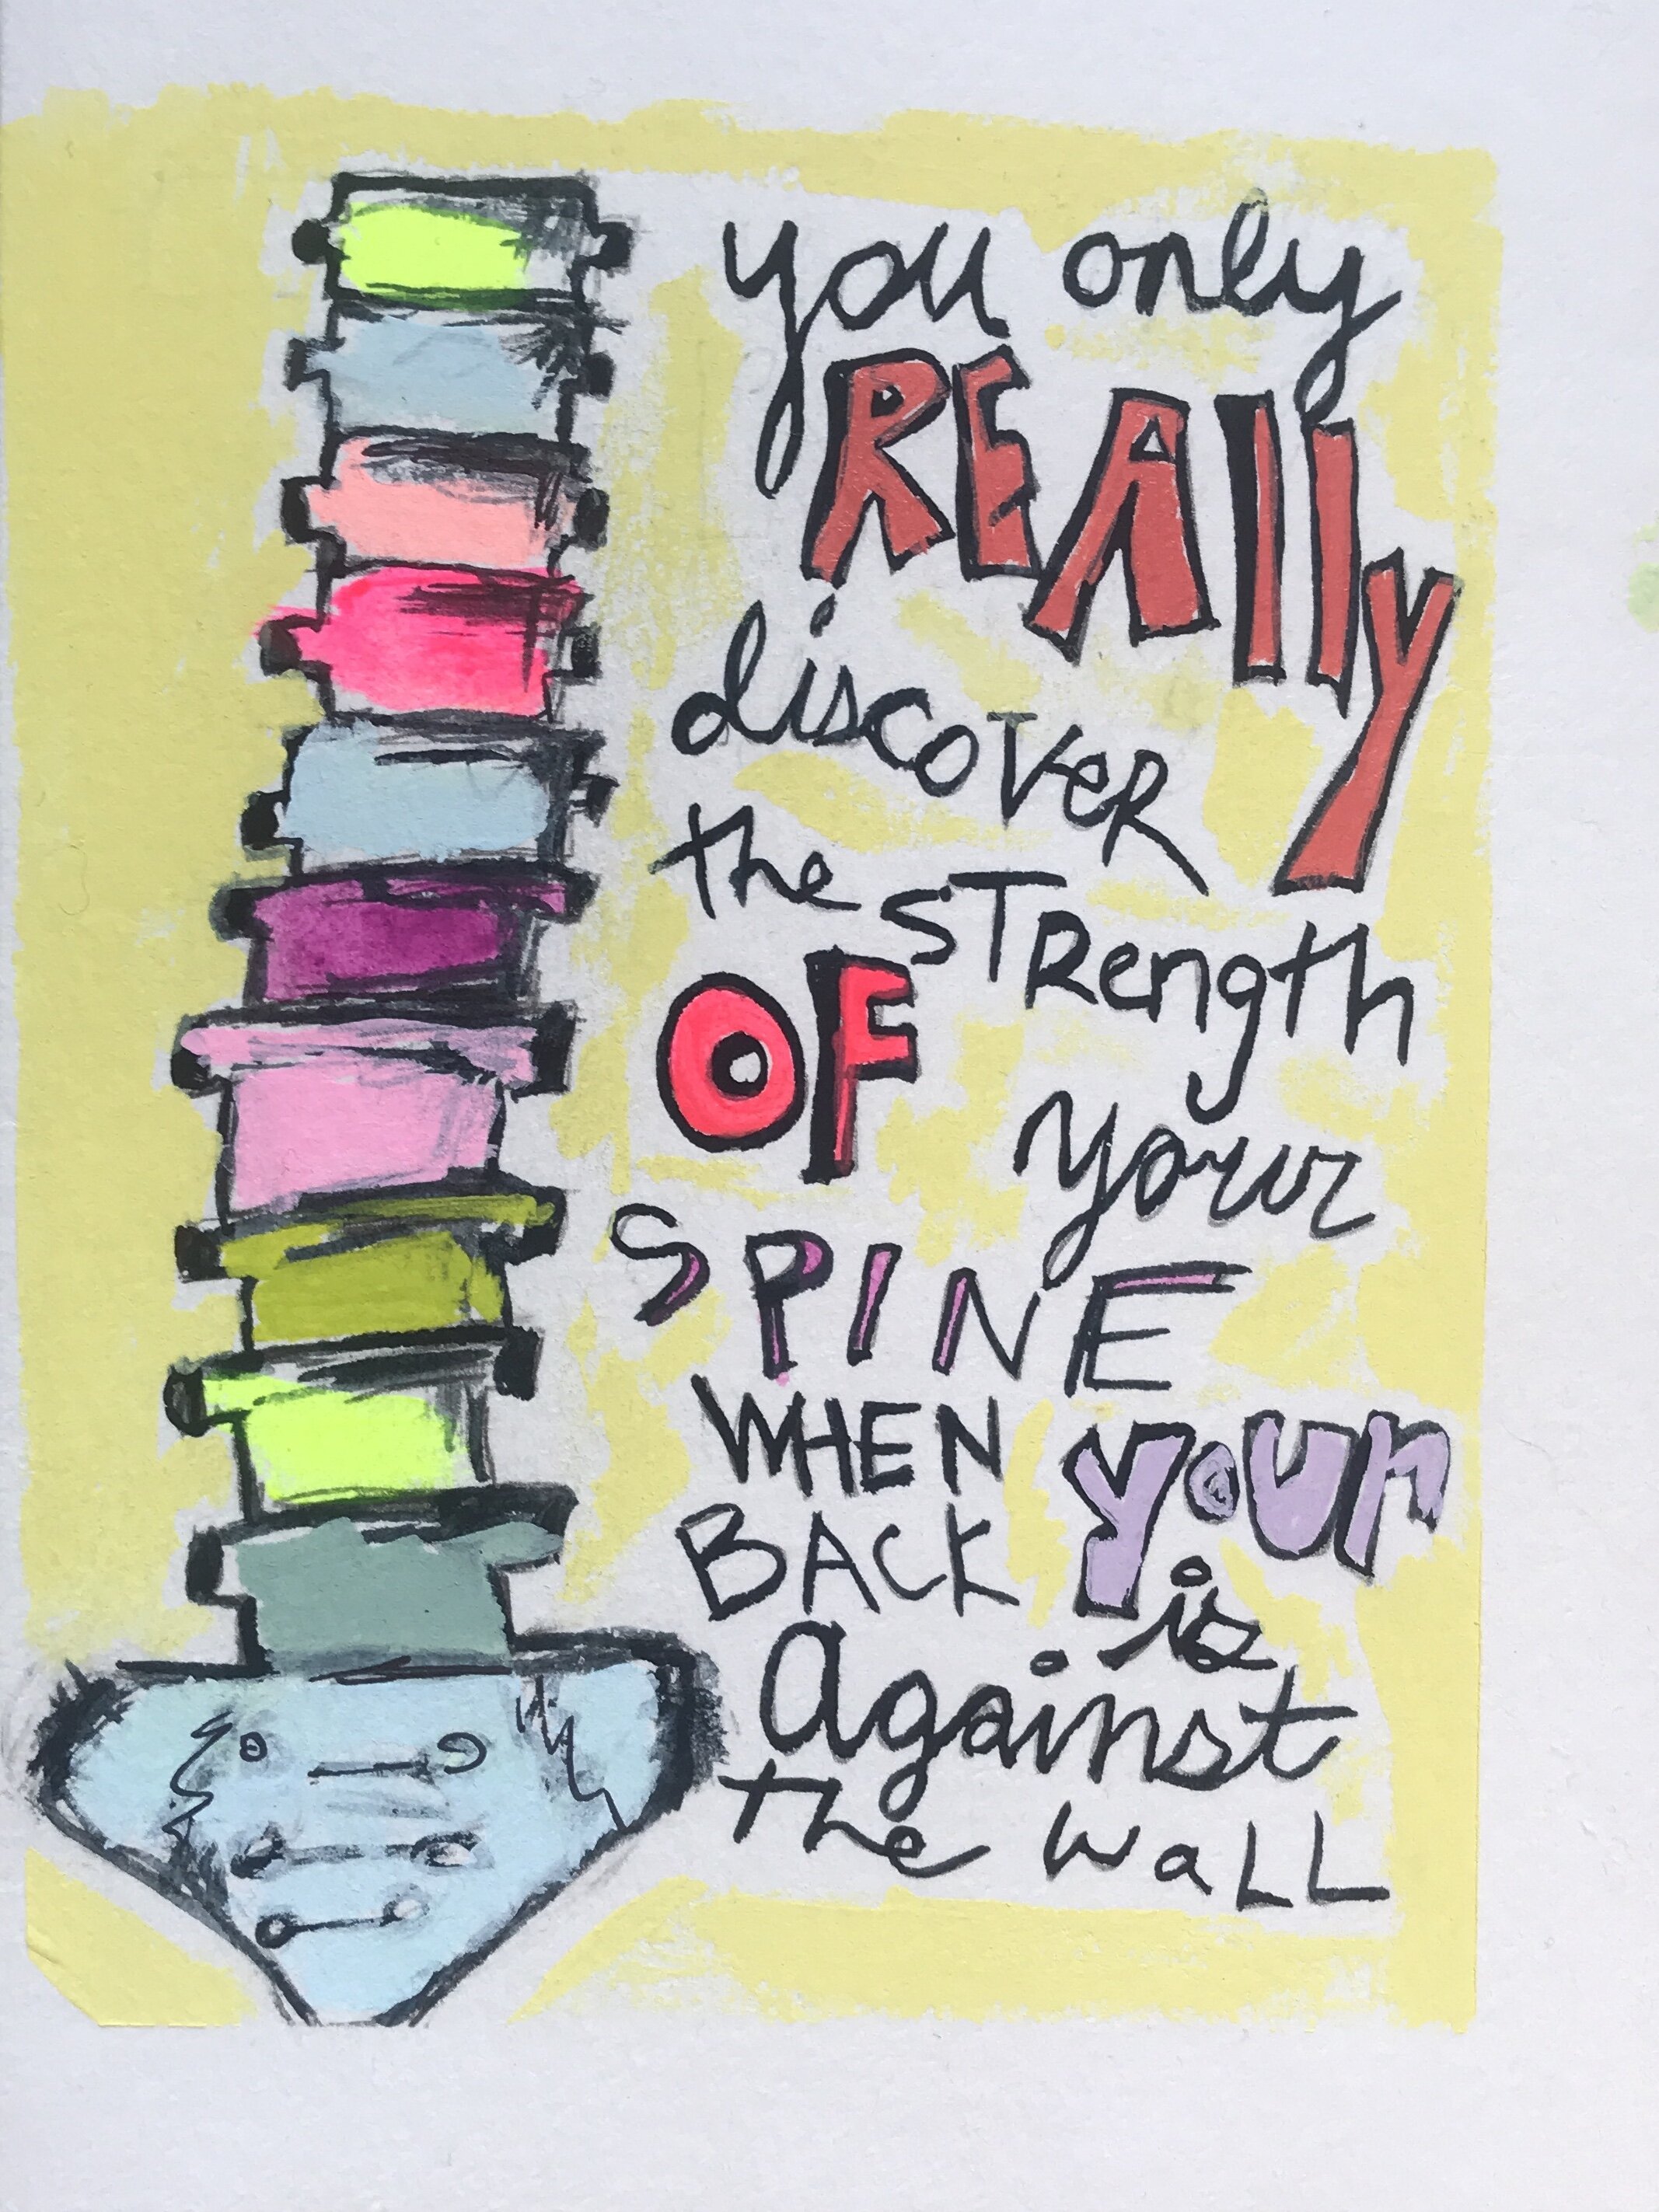 you only
REAlly
discover
the sTRength
OF your
SPINE
WHEN your
BACK is
against
the waLL